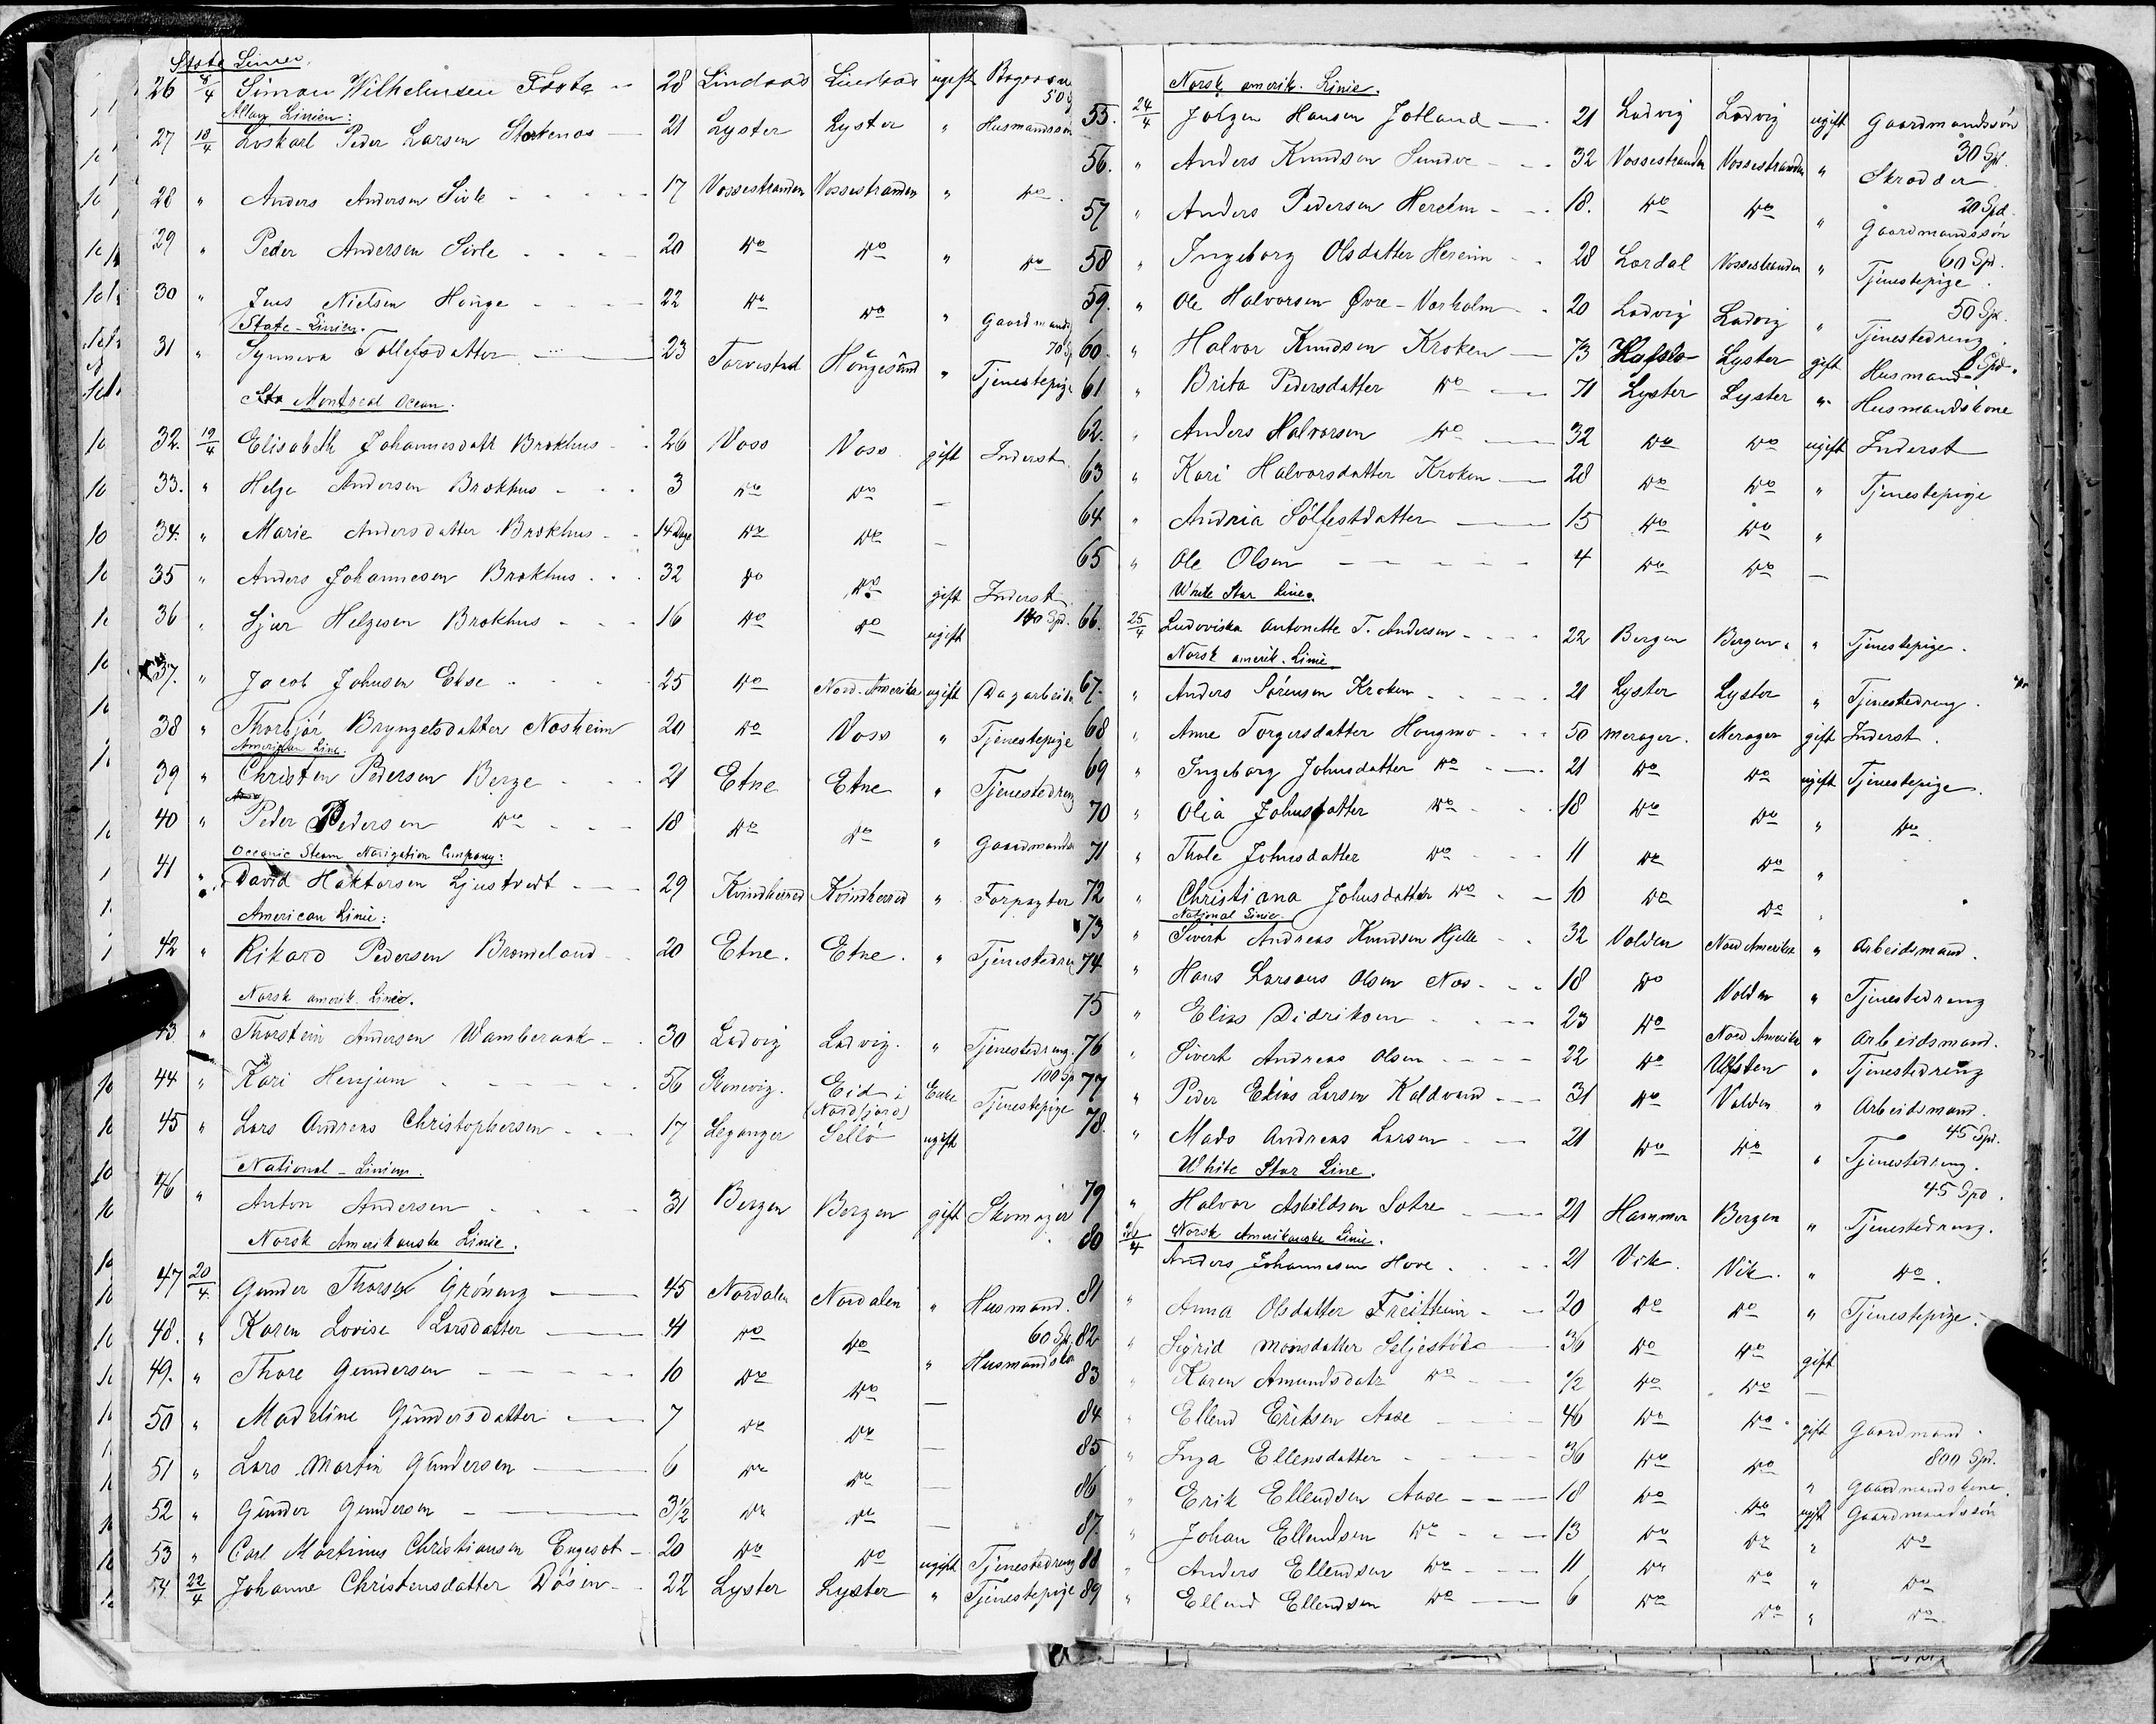 State Linie.
26 8/4 Simon Wilhelmsen 28 Lindaas Lindaas ugift
Allan Linien:
27 18/4 Peder Larsen 21 Lyster Lyster " Husmandssøn
28 " Anders Andersen Sivle 17 Vossestranden Vossestranden " Do
29 " Peder Andersen Sivle 20 Do Do " Do
30 " Jens Nielsen Hauge 22 Do Do " Gaardmands
State-Linien. 70 Sp
31 " Synneva Tollefsdatter 23 Torvestad Höugesünd " Tjenestepige
Montreal Ocean.
32. 19/4 Elisabeth Johannesdatt Brækhus 26 Voss Voss gift Inderst
33. " Helge Andersen Brækhus 3 Do Do —
34. " Marie Andersdatter Brækhus 14 Dage Do Do —
35 " Anders Johannesen Brækhus 32 Do Do gift Inderst
36 " Sjur Helgesen Brækhus 16 Do Do ugift
37. " Jacob Johnsen Ekse 25 Do Nord-Amerika ugift Dagarbeide
38 " Thorbjör Bryngelsdatter Nosheim 20 Do Voss " Tjenestepige
American Line.
39 " Christen Pedersen Berge 21 Etne Etne " Tjenestedreng
40 " Peder Pedersen Do 18 Do Do " Gaardmands
Oceanic Steam Navigation Company:
41 " David Haktorsen 29 Kvindherred Kvindherred " Forpagter
American Linie:
42 " Rikard Pedersen Brondeland 20 Etne. Etne. " Tjenestedren
Norsk amerik. Linie.
43 " Thorstein Andersen 30 Ladvig Ladvig. " Tjenestedreng.
100 Sp
44 " Kari Henjum 56 Eid i Enke Tjenestepige
(Nordfjord)
45 " Lars Andreas Christophersen 17 Leganger Sellö ugift
National-Linien.
46 " Anton Andersen 31 Bergen Bergen gift Skomager
Norsk Amerikanske Linie.
47 20/4 Gunder Thorsen Gröning 45 Nordalen Nordalen " Husmand.
60 Sp.
48. " Karen Lovise Larsdatter 41 Do Do " Husmandsko
49. " Thore Gundersen 10 Do Do —
50 " Madeline Gündersdatter 7 Do Do —
51 " Lars Martin Gündersen 6 Do Do —
52 " Günder Gundersen 3 1/2 Do Do —
53 " Carl Martinus Christiansen 20 Do Do ugift Tjenestedreng
54 22/4 Johanne Christensdatter Dösen 22 Lyster Lyster " Tjenestepige
Norsk amerik. Linie.
55. 24/4 Hansen Jotland 21 Ladvig Ladvig ugift Gaardmandssön
30 Spd.
56. " Anders Knudsen Sundve 32 Vossestranden Vossestranden " Skrædder
20 Spd.
57 " Anders Pedersen 18. Do Do " Gaardmandssön
60 Spd.
58 " Ingeborg Olsdatter 28 Lærdal Vossestranden " Tjenestepige.
50 Spd.
59. " Ole Halvorsen Øvre-Varholm 20 Ladvig Ladvig " Tjenestedreng.
8 Spd.
60 " Halvor Knudsen Kroken 73 Hafslo Lyster gift Husmand
61 " Brita Pedersdatter Do 71 Lyster Lyster " Husmandskone
62. " Anders Halvorsen Do 32 Do Do ugift Inderst
63 " Kari Halvorsdatter Kroken 28 Do Do " Tjenestepige
64 " Andria Sölfestdatter 15 Do Do "
65 " Ole Olsen 4 Do Do —
White Star Line.
66. 25/4 Ludoviska Antonette T. Andersen 22 Bergen Bergen. " Tjenestepige.
Norsk amerik. Linie.
67. " Anders Sörensen Kroken 21 Lyster Lyster " Tjenestedreng.
68 " Anne Torgersdatter Hougmo 50 Morager. Morager gift Inderst.
69 " Ingeborg Johnsdatter Do 21 Do Do ugift Tjenestepige.
70 " Olia Johnsdatter Do 18 Do Do " Do
71 " Thale Johnsdatter Do 11 Do Do "
72 " Christiana Johnsdatter Do 10 Do Do "
National Linie.
73 " Sivert Andreas Knudsen Hjelle 32 Volden Nord Amerika " Arbeidsmand.
74 " Hans Larsens Olsen Nos 18 Do Volden " Tjenestedreng
75 " Elias Didriksen 23 Do Nord Amerika " Arbeidsmand.
76 " Sivert Andreas Olsen 22 Do Ulfsten " Tjenestedreng
77 " Peder Elias Larsen Kaldvand 31 Do Volden " Arbeidsmand.
45 Spd.
78. " Mads Andreas Larsen 21 Do Do " Tjenestedreng.
45 Spd.
White Star Line.
79 " Halvor Askildsen Sotre 21 Hammer Bergen " Tjenestedreng.
Norsk Amerikanske Linie.
80 Anders Johannesen Hove 21 Vik. Vik. " Do.
81 " Anna Olsdatter Freitheim 20 Do Do " Tjenestepige.
82 " Sigrid Monsdatter Seljestöde 36 Do Do gift
83 " Karen Amundsdatr Do 1/2 Do Do —
84 " Ellend Eriksen Aase 46 Do Do gift Gaardmand.
800 Spd.
85 " Inga Ellensdatter 36 Do Do " Gaardmandskone.
86 " Erik Ellendsen Aase 18 Do Do ugift Gaardmandssön
87. " Johan Ellendsen Do 13 Do Do " Do
88 " Anders Ellendsen Do 11 Do Do " Do
89 " Ellend Ellendsen Do 6 Do Do " Do